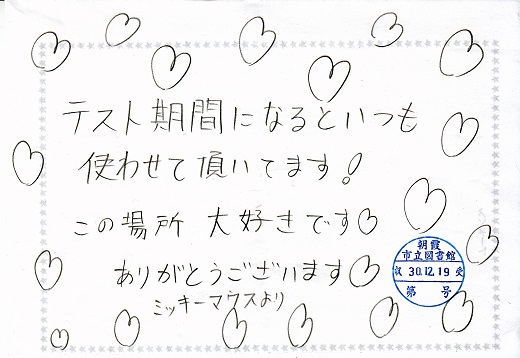 テスト期間になるといつも
使わせて頂いてます!
この場所 大好きです
ありがとうございます
ミッキーマウスより
朝霞
市立図書館
収 30.12.19 受
第 号